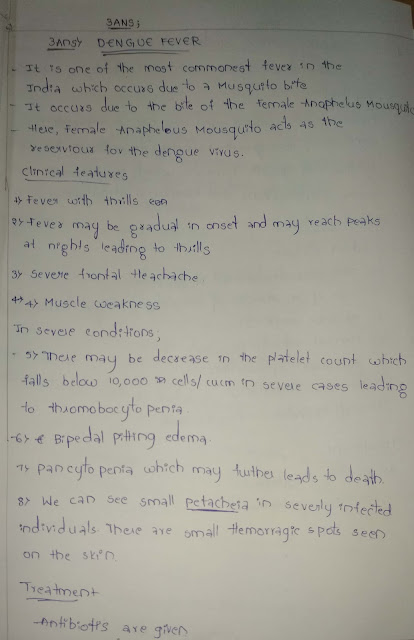 3ANS;
3Ans> DENGUE FEVER
- It is one of the most commonest fever in the
India which occurs due to a Musquito bite
- It occurs due to the bite of the female Anophelus Mousquito
- Here, Female Anaphelous Mousquito acts as the
reserviour for the dengue virus.
Clinical features
1> Fever with thrills
2> Fever may be gradual in onset and may reach peaks
at nights leading to thrills
3> Severe frontal Heachache
4> Muscle weakness
In severe conditions,
- 5> There may be decrease in the platelet count which
falls below 10,000 cells/cucm in severe cases leading
to thromobocyto penia.
-6> Bipedal pitting edema.
7> pancyto penia which may further leads to death.
8> We can see small petacheia in severly infected
individuals. There are small Hemorragic spots seen
on the skin.
Treatment
-Antibiotis are given